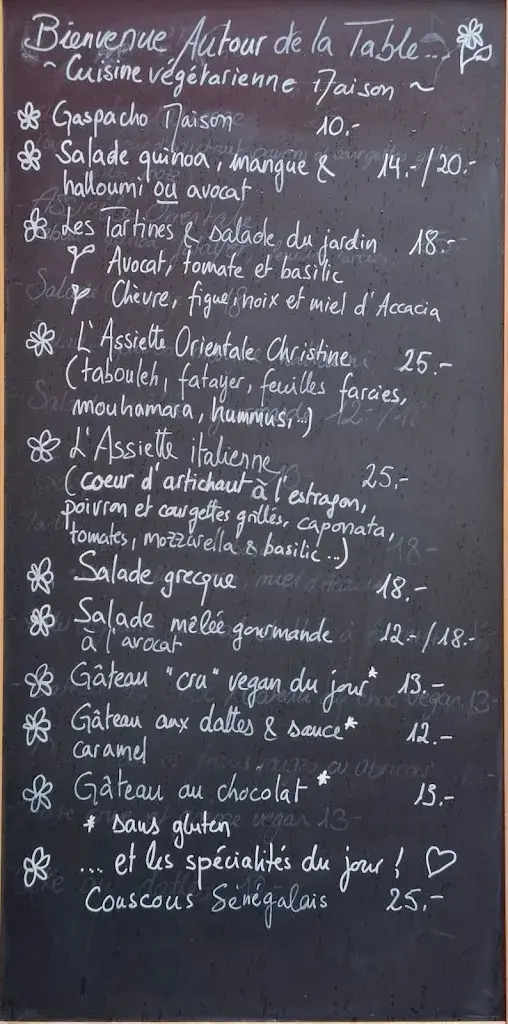 Bienvenue Autour de la Table...
~ Cuisine végétarienne Maison ~
Gaspacho Maison 10.-
Salade quinoa, mangue & 14.-/20.-
halloumi ou avocat
Les Tartines & salade du jardin 18.-
Avocat, tomate et basilic
Chèvre, figue, noix et miel d'Accacia
L'Assiette Orientale Christine 25.-
(tabouleh, fatayer, feuilles farcies,
mouhamara, hummus,...)
L'Assiette italienne 25.-
(coeur d'artichaut à l'estragon,
poivron et courgettes grillés, caponata,
tomates, mozzarella & basilic...)
Salade grecque 18.-
Salade mêlée gourmande 12.-/18.-
à l'avocat
Gâteau "cru" vegan du jour* 13.-
Gâteau aux dattes & sauce* 12.-
caramel
Gâteau au chocolat* 13.-
* sans gluten
... et les spécialités du jour !
Couscous Sénégalais 25.-